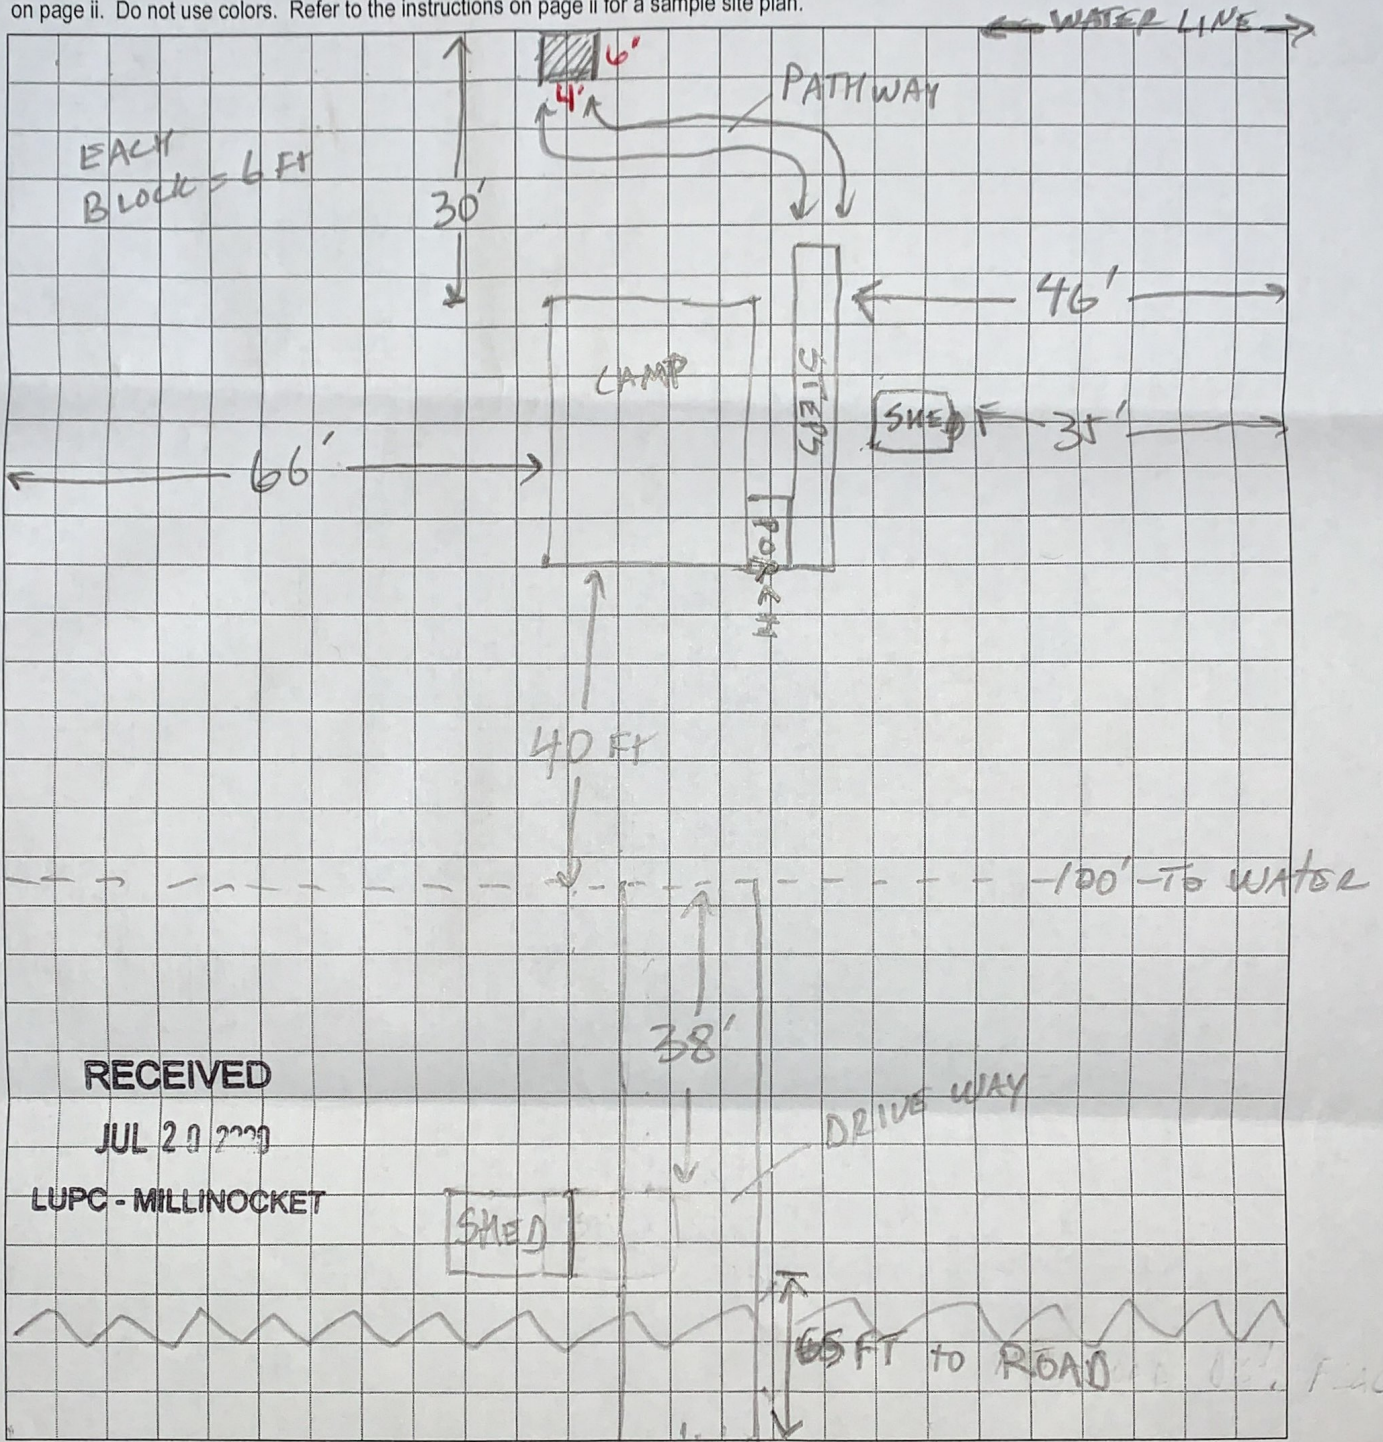 on page ii.  Do not use colors.  Refer to the instructions on page ii for a sample site plan.
WATER LINE
6'
4'
PATHWAY
EACH
BLOCK = 6 Ft
30'
46'
CAMP
STEPS
SHED
35'
66'
PORCH
40 Ft
100' To WAtER
38'
RECEIVED
JUL 20
LUPC - MILLINOCKET
DRIVE WAY
SHED
65 FT to ROAD